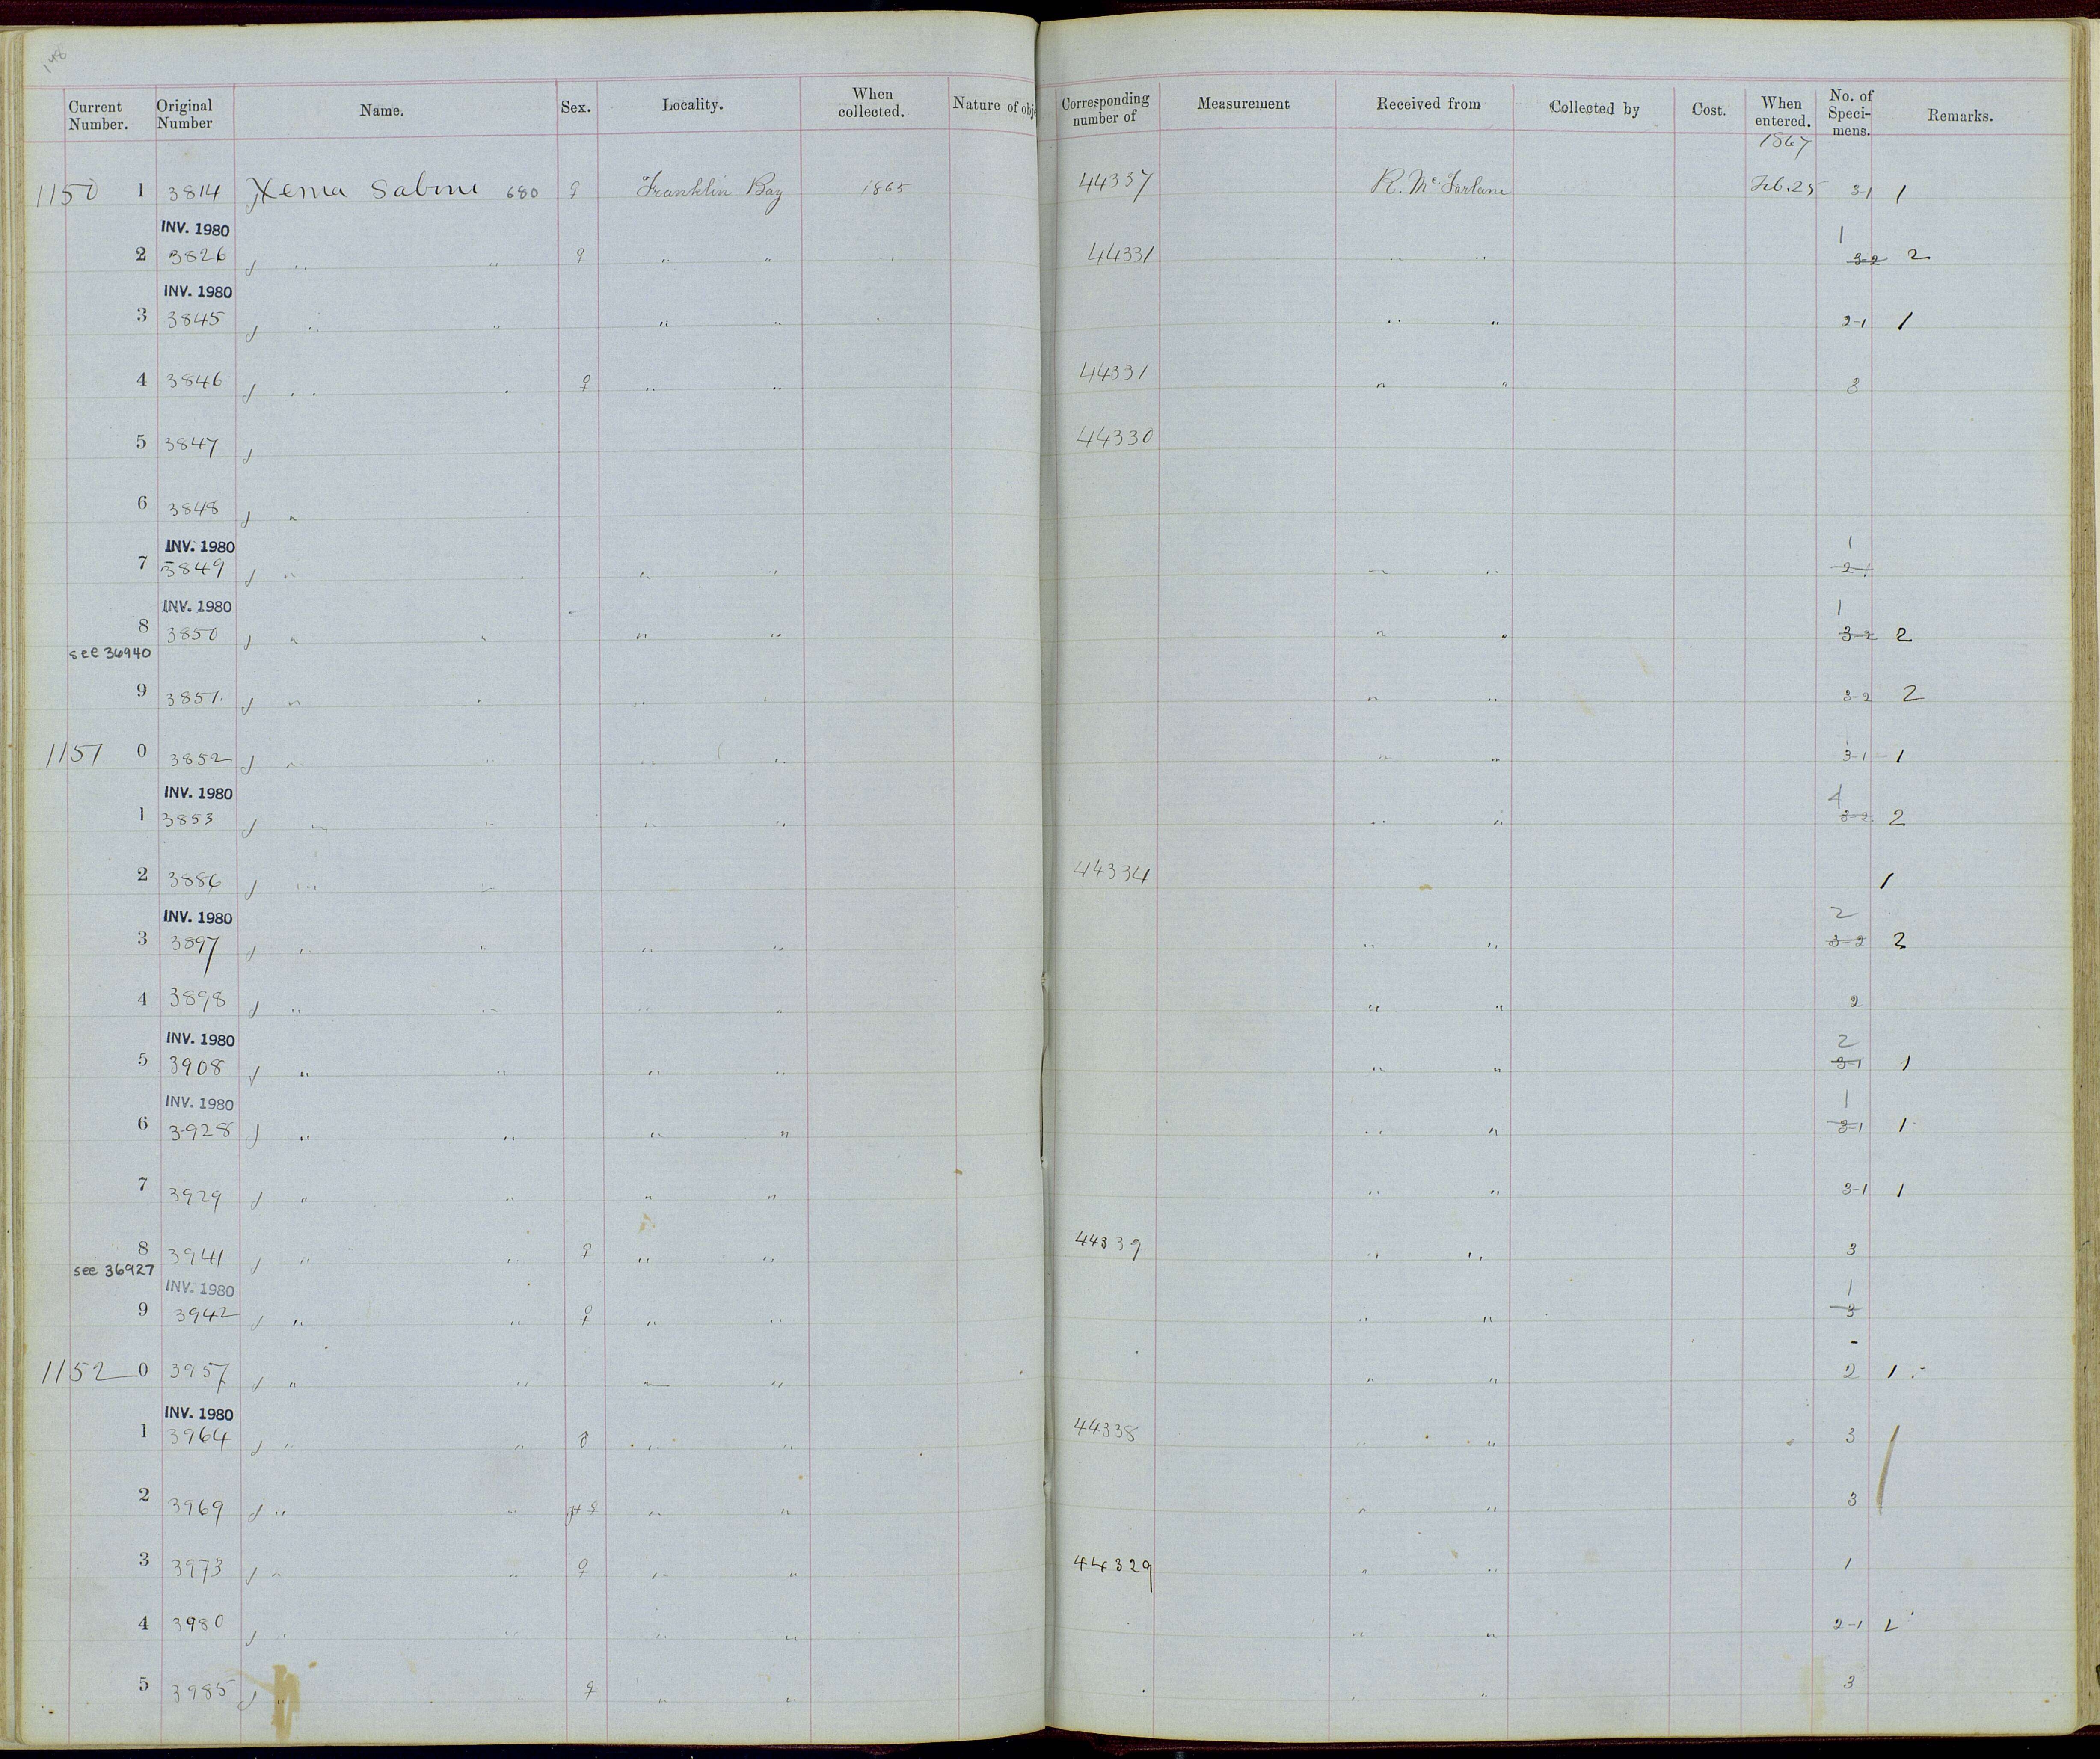 148
Current Number. Original Number Name. Sex. Locality. When collected. Nature of obje Corresponding number of Measurement Received from Collected by Cost. When entered. No. of Speci-mens. Remarks.
1867
1150 1 3814 Xema Sabini 680 ♀ Franklin Bay 1865 44337 R. McFarlane Feb. 25 3-1 1
INV. 1980 1
2 3826 " " ♀ " " " 44331 " " 3-2 2
INV. 1980
3 3845 " " " " " " " 2-1 1
4 3846 " " ♀ " " 44331 " " 3
5 3847 44330
6 3848 "
INV. 1980 1
7 3849 " " " " " " 2-1
INV. 1980 1
8 3850 " " " " " " 3-2 2
see 36940
9 3851 " " " " " " 3-2 2
1151 0 3852 " " " " " " 3-1 1
INV. 1980 4
1 3853 " " " " " " 3-2 2
2 3886 " " 44334 1
INV. 1980 2
3 3897 " " " " " " 3-2 2
4 3898 " " " " " " 2
INV. 1980 2
5 3908 " " " " " " 3-1 1
INV. 1980 1
6 3928 " " " " " " 3-1 1
7 3929 " " " " " " 3-1 1
8 3941 " " ♀ " " 44339 " " 3
see 36927
INV. 1980 1
9 3942 " " ♀ " " " " 3
1152 0 3957 " " " " " " 2 1
INV. 1980
1 3964 " " ♂ " " 44338 " " 3 /
2 3969 " " ♀ " " " " 3
3 3973 " " ♀ " " 44329 " " 1
4 3980 " " " " " " 2-1 1
5 3985 " " ♀ " " " " 3